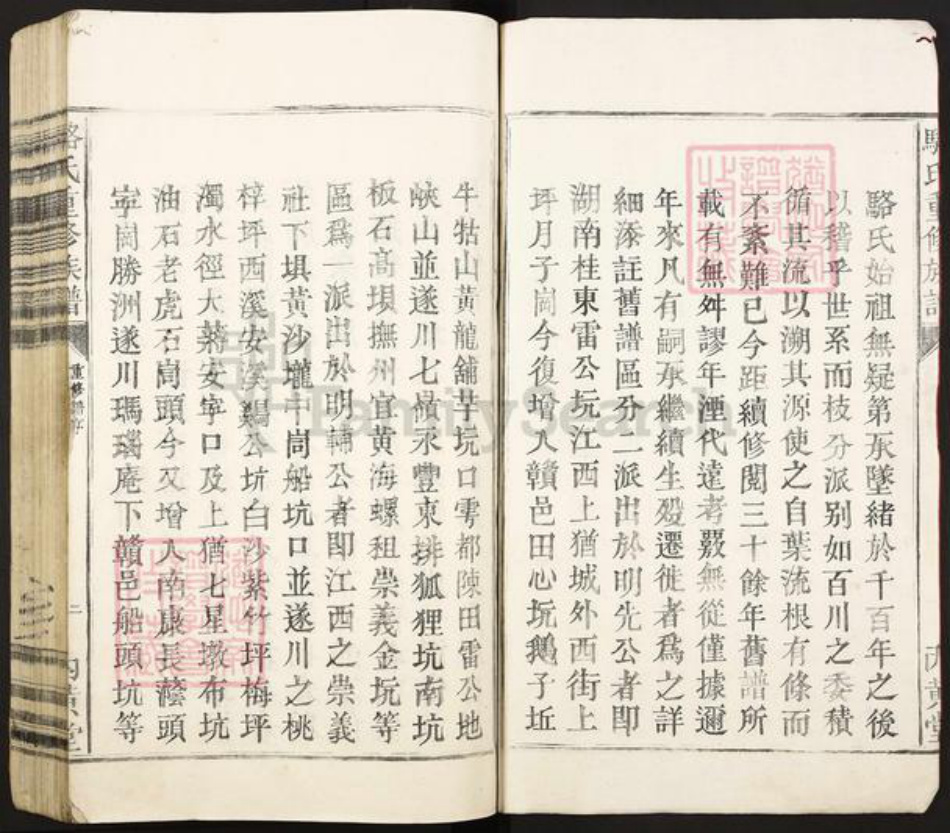 駱氏重修族譜
駱氏始祖無疑第承墜緒於千百年之後
以稽乎世系而枝分派別如百川之委積
循其流以溯其源使之自葉流根有條而
不紊難已今距續修閱三十餘年舊譜所
載有無舛謬年湮代遠考覈無從僅據邇
年來凡有嗣承繼續生歿遷徙者爲之詳
細添註舊譜區分二派出於明先公者即
湖南桂東雷公坑江西上猶城外西街上
坪月子崗今復增入贛邑田心坑鵝子坵
牛牯山黃龍舖芋坑口雩都陳田雷公地
峽山並遂川七嶺永豐東排狐狸坑南坑
板石高垻撫州宜黃海螺租崇義金坑等
區爲一派出於明輔公者即江西之崇義
社下垻黃沙壠中崗船坑口並遂川之桃
梓坪西溪安溪鷄公坑白沙紫竹坪梅坪
濁水徑大菶安寧口及上猶七星墩布坑
油石老虎石崗頭今又增入南康長蔭頭
寧崗勝洲遂川瑪瑙庵下贛邑船頭坑等
駱氏重修族譜
重修譜序
二
內黃堂
FamilySearch